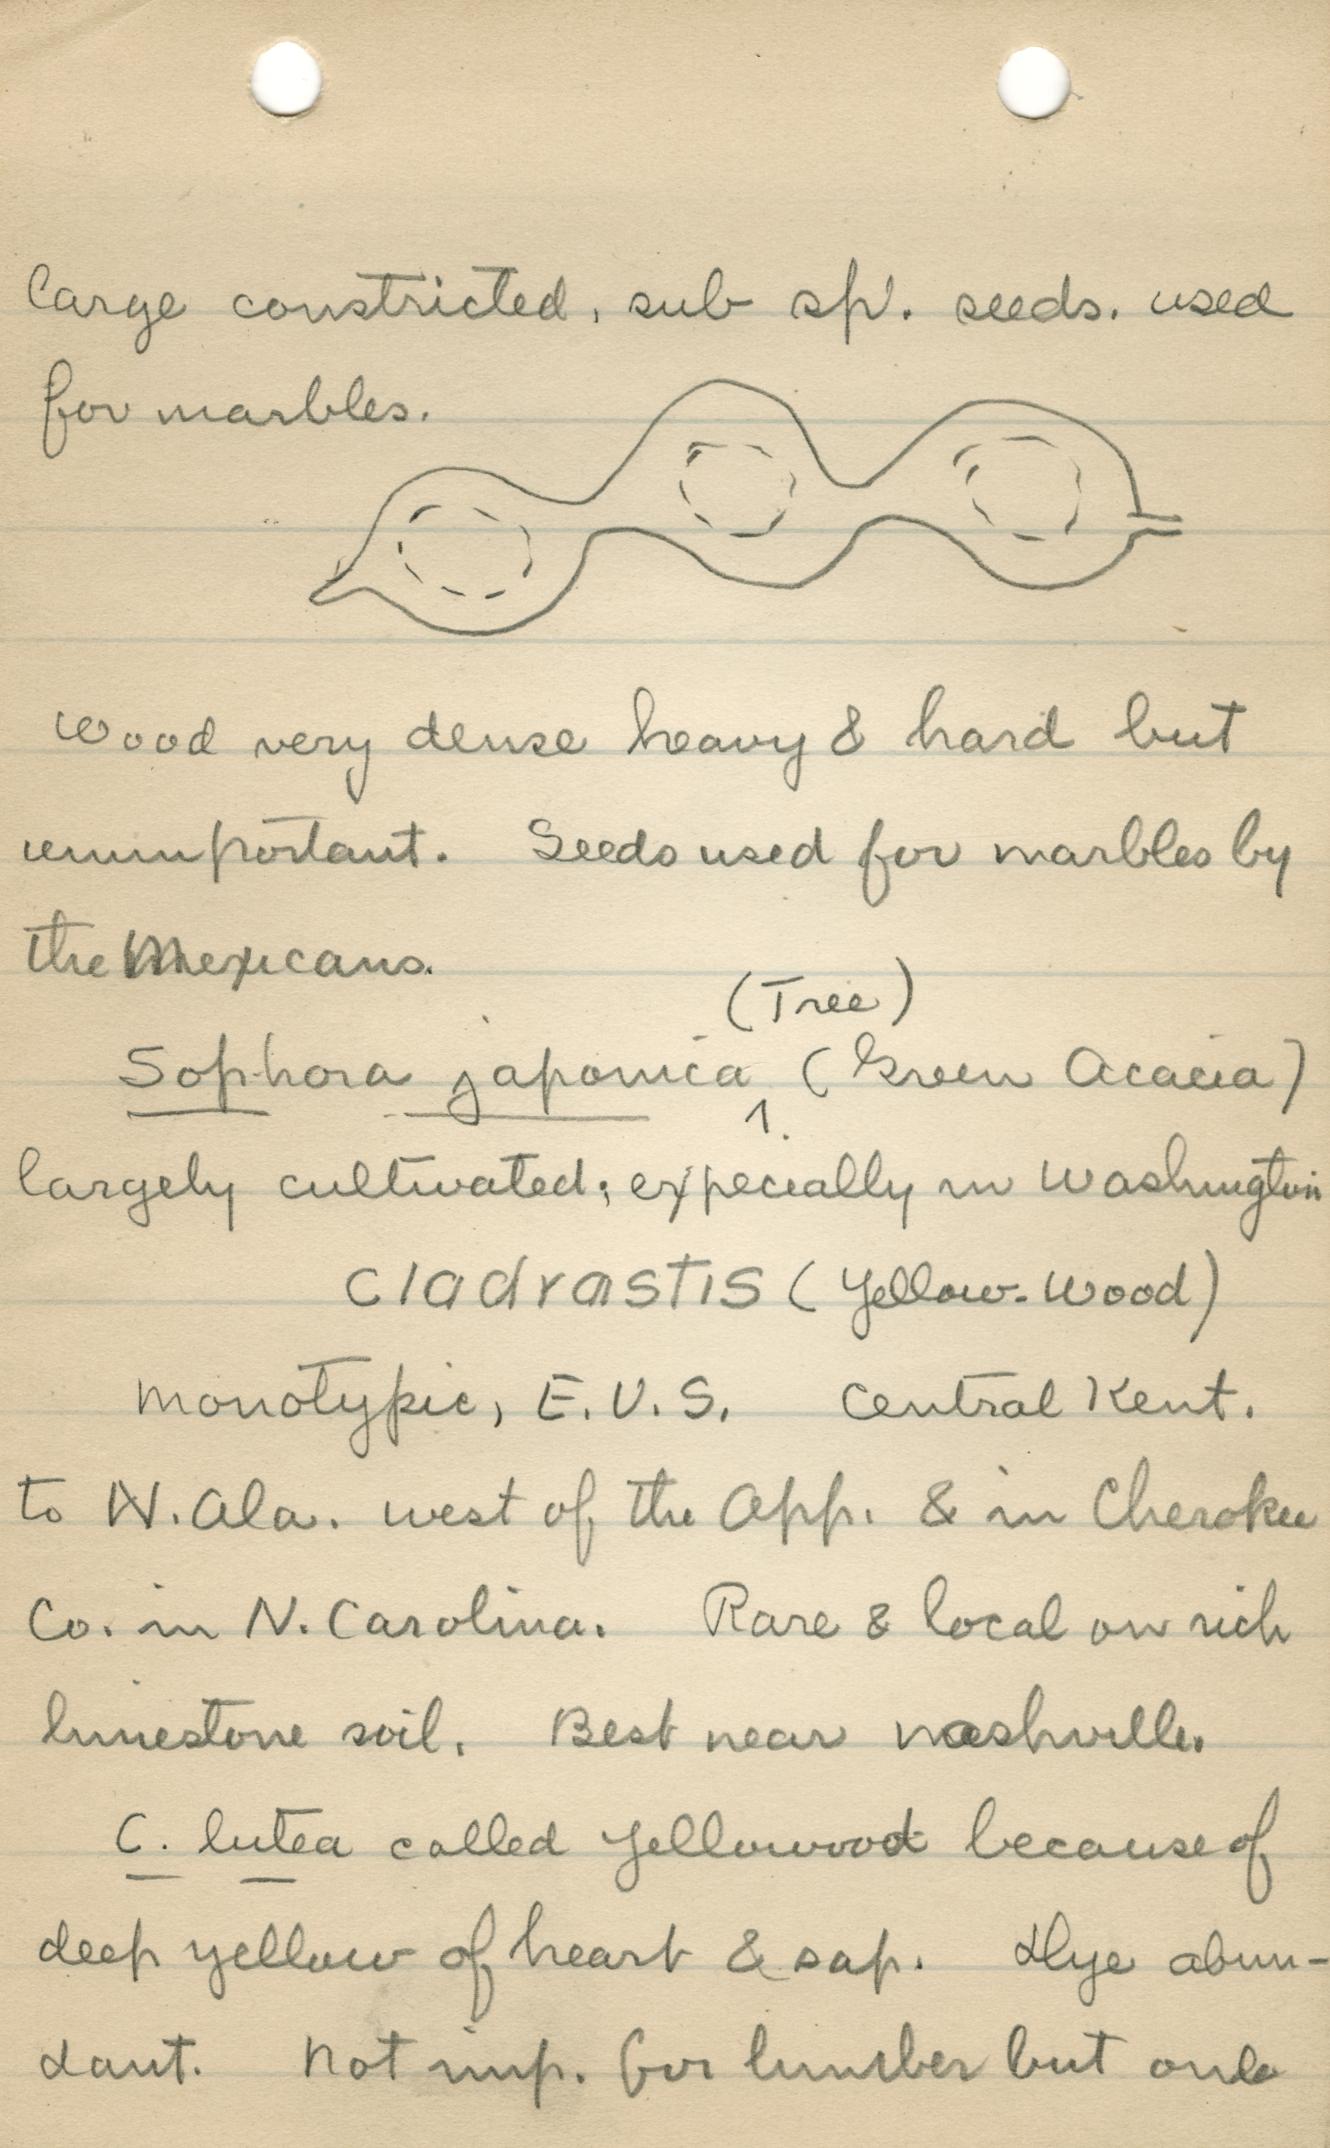 large constricted, sub sp'. seeds. used
for marbles.
Wood very dense heavy & hard but
unimportant. Seeds used for marbles by
the Mexicans.
(Tree)
Sophora japonica ^ (Green Acacia)
largely cultivated; expecially in Washington
Cladrastis (Yellow-Wood)
Monotypic, E.U.S. Central Kent.
to N. Ala. west of the App. & in Cherokee
Co. in N. Carolina. Rare & local on rich
limestone soil. Best near Nashville.
C. lutea called Yellowwood because of
deep yellow of heart & sap. Dye abun-
dant. Not imp. for lumber but one